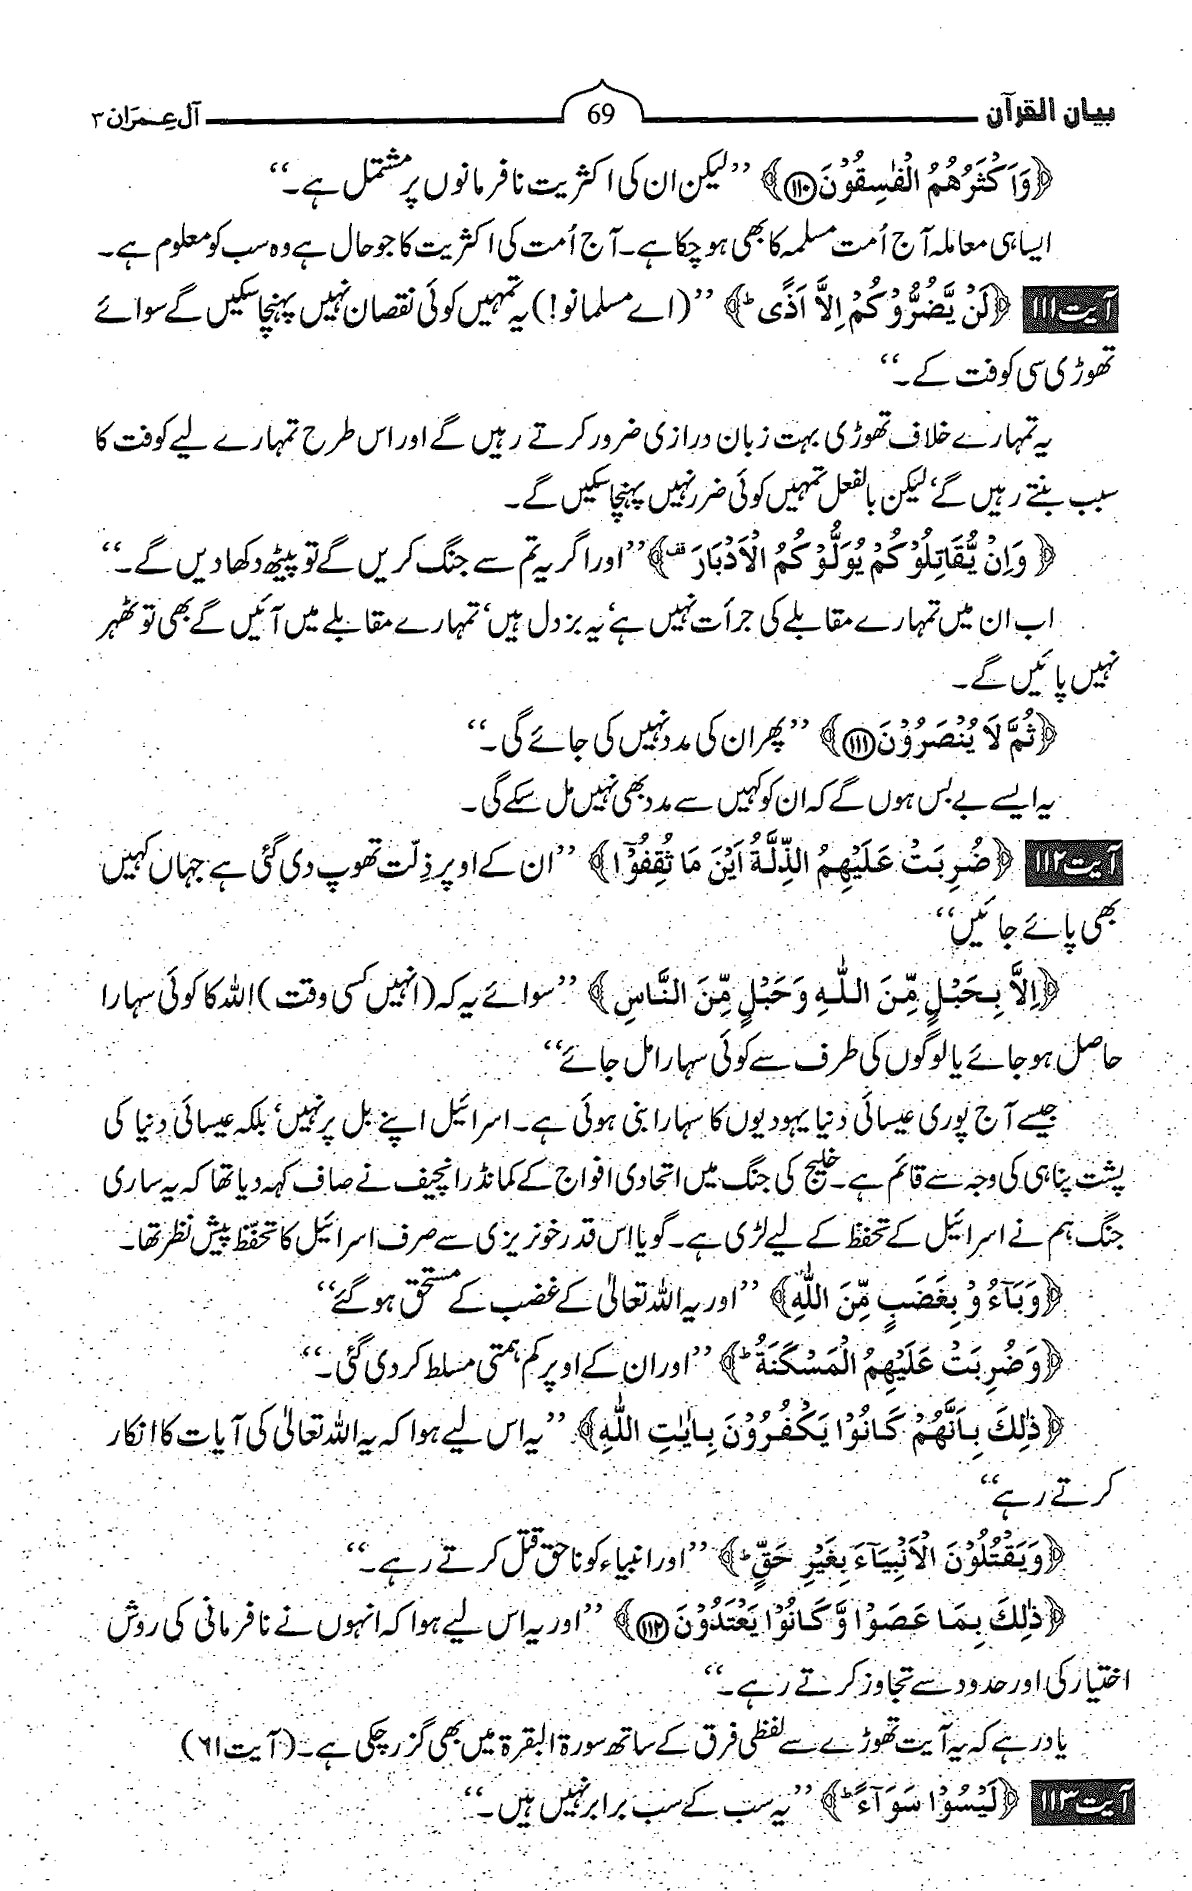 بیان القرآن 69 آلِ عِمرَان ۳
﴿وَاَكْثَرُهُمُ الْفٰسِقُوْنَ۝۱۱۰﴾ ’’لیکن ان کی اکثریت نافرمانوں پر مشتمل ہے۔‘‘
ایسا ہی معاملہ آج اُمت مسلمہ کا بھی ہو چکا ہے۔ آج اُمت کی اکثریت کا جو حال ہے وہ سب کو معلوم ہے۔
آیت ۱۱۱ ﴿لَنْ يَّضُرُّوْكُمْ اِلَّا اَذًى ؕ﴾ ’’(اے مسلمانو!) یہ تمہیں کوئی نقصان نہیں پہنچا سکیں گے سوائے
تھوڑی سی کوفت کے۔‘‘
یہ تمہارے خلاف تھوڑی بہت زبان درازی ضرور کرتے رہیں گے اور اس طرح تمہارے لیے کوفت کا
سبب بنتے رہیں گے‘ لیکن بالفعل تمہیں کوئی ضرر نہیں پہنچا سکیں گے۔
﴿وَاِنْ يُّقَاتِلُوْكُمْ يُوَلُّوْكُمُ الْاَدْبَارَ ۫﴾ ’’اور اگر یہ تم سے جنگ کریں گے تو پیٹھ دکھا دیں گے۔‘‘
اب ان میں تمہارے مقابلے کی جرأت نہیں ہے‘ یہ بزدل ہیں‘ تمہارے مقابلے میں آئیں گے بھی تو ٹھہر
نہیں پائیں گے۔
﴿ثُمَّ لَا يُنْصَرُوْنَ۝۱۱۱﴾ ’’پھر ان کی مدد نہیں کی جائے گی۔‘‘
یہ ایسے بے بس ہوں گے کہ ان کو کہیں سے مدد بھی نہیں مل سکے گی۔
آیت ۱۱۲ ﴿ضُرِبَتْ عَلَيْهِمُ الذِّلَّةُ اَيْنَ مَا ثُقِفُوْٓا﴾ ’’ان کے اوپر ذِلّت تھوپ دی گئی ہے جہاں کہیں
بھی پائے جائیں‘‘
﴿اِلَّا بِحَبْلٍ مِّنَ اللّٰهِ وَحَبْلٍ مِّنَ النَّاسِ﴾ ’’سوائے یہ کہ (انہیں کسی وقت) اللہ کا کوئی سہارا
حاصل ہو جائے یا لوگوں کی طرف سے کوئی سہارا مل جائے‘‘
جیسے آج پوری عیسائی دنیا یہودیوں کا سہارا بنی ہوئی ہے۔ اسرائیل اپنے بل پر نہیں‘ بلکہ عیسائی دنیا کی
پشت پناہی کی وجہ سے قائم ہے۔ خلیج کی جنگ میں اتحادی افواج کے کمانڈر انچیف نے صاف کہہ دیا تھا کہ یہ ساری
جنگ ہم نے اسرائیل کے تحفظ کے لیے لڑی ہے۔ گویا اس قدر خونریزی سے صرف اسرائیل کا تحفّظ پیش نظر تھا۔
﴿وَبَآءُوْ بِغَضَبٍ مِّنَ اللّٰهِ﴾ ’’اور یہ اللہ تعالیٰ کے غضب کے مستحق ہو گئے‘‘
﴿وَضُرِبَتْ عَلَيْهِمُ الْمَسْكَنَةُ ؕ﴾ ’’اور ان کے اوپر کم ہمتی مسلط کر دی گئی۔‘‘
﴿ذٰلِكَ بِاَنَّهُمْ كَانُوْا يَكْفُرُوْنَ بِاٰيٰتِ اللّٰهِ﴾ ’’یہ اس لیے ہوا کہ یہ اللہ تعالیٰ کی آیات کا انکار
کرتے رہے‘‘
﴿وَيَقْتُلُوْنَ الْاَنْبِيَآءَ بِغَيْرِ حَقٍّ ؕ﴾ ’’اور انبیاء کو ناحق قتل کرتے رہے۔‘‘
﴿ذٰلِكَ بِمَا عَصَوْا وَّكَانُوْا يَعْتَدُوْنَ۝۱۱۲﴾ ’’اور یہ اس لیے ہوا کہ انہوں نے نافرمانی کی روش
اختیار کی اور حدود سے تجاوز کرتے رہے۔‘‘
یاد رہے کہ یہ آیت تھوڑے سے لفظی فرق کے ساتھ سورۃ البقرۃ میں بھی گزر چکی ہے۔ (آیت ۶۱)
آیت ۱۱۳ ﴿لَيْسُوْا سَوَآءً ؕ﴾ ’’یہ سب کے سب برابر نہیں ہیں۔‘‘